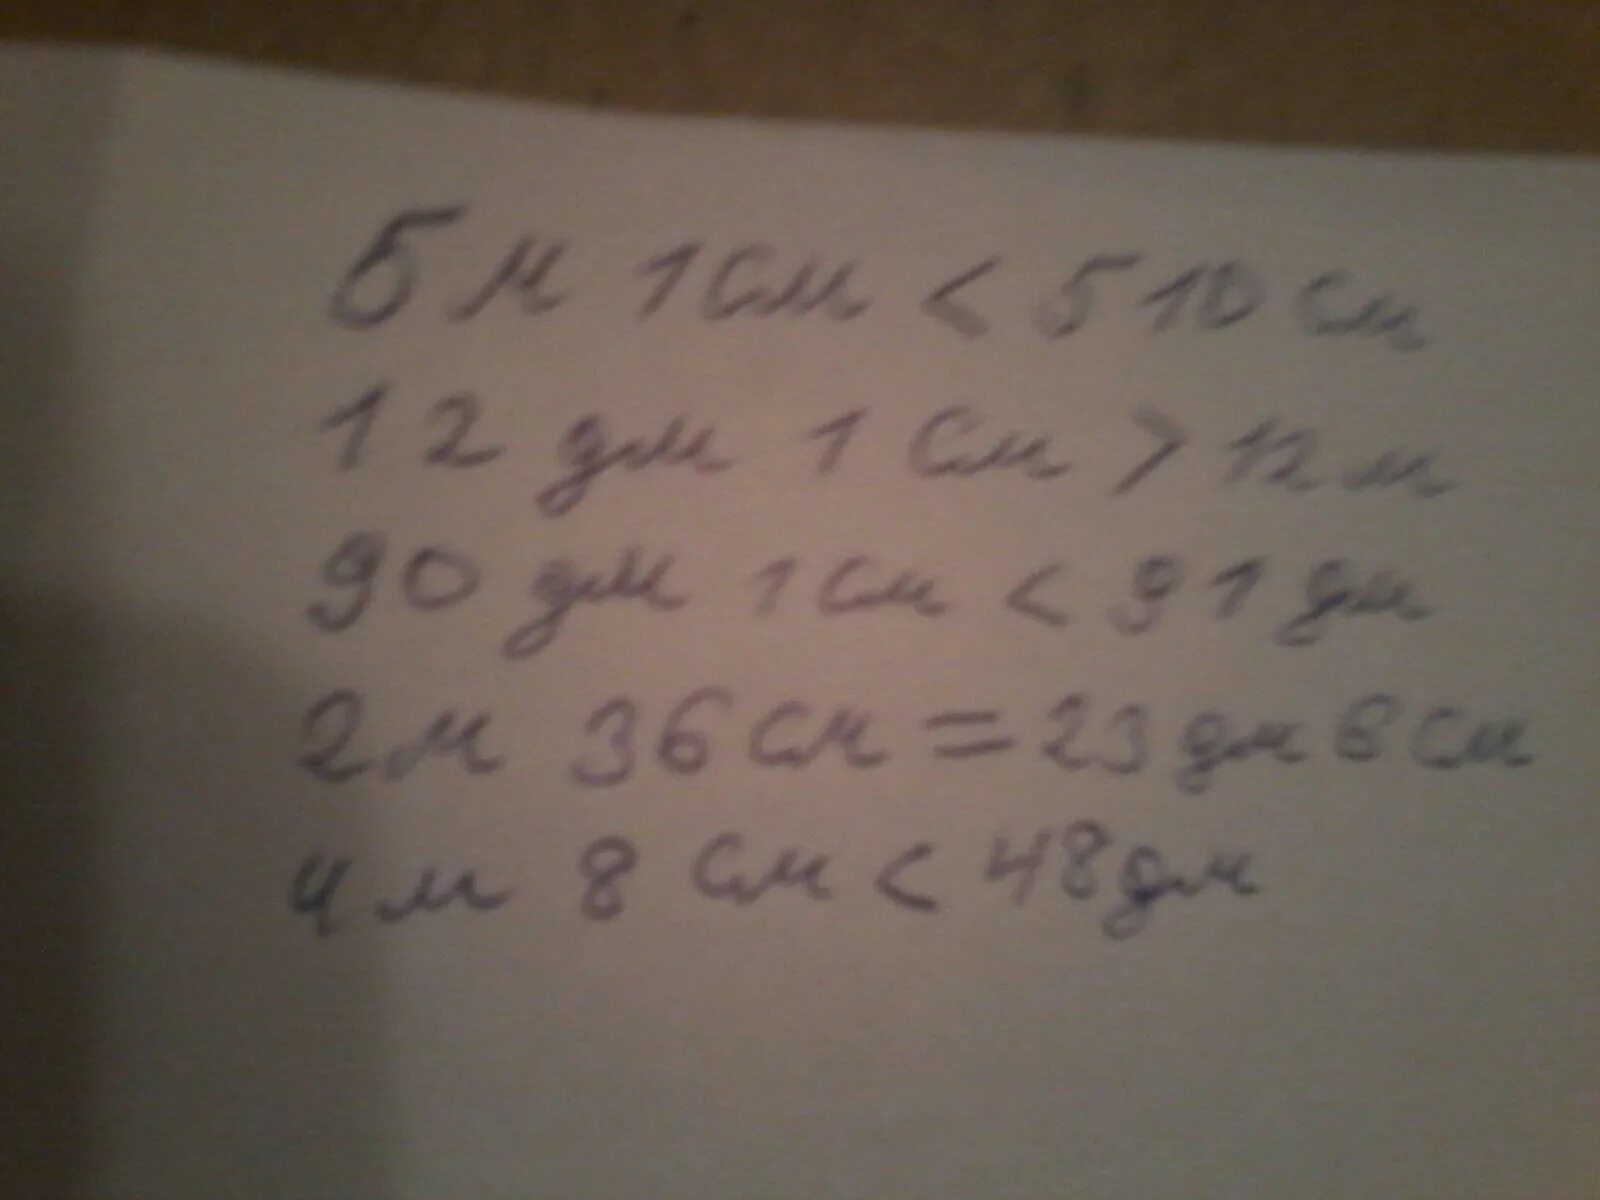 5 м 1 см < 510 см
12 дм 1 см > 12 м
90 дм 1 см < 91 дм
2 м 36 см = 23 дм 6 см
4 м 8 см < 48 дм